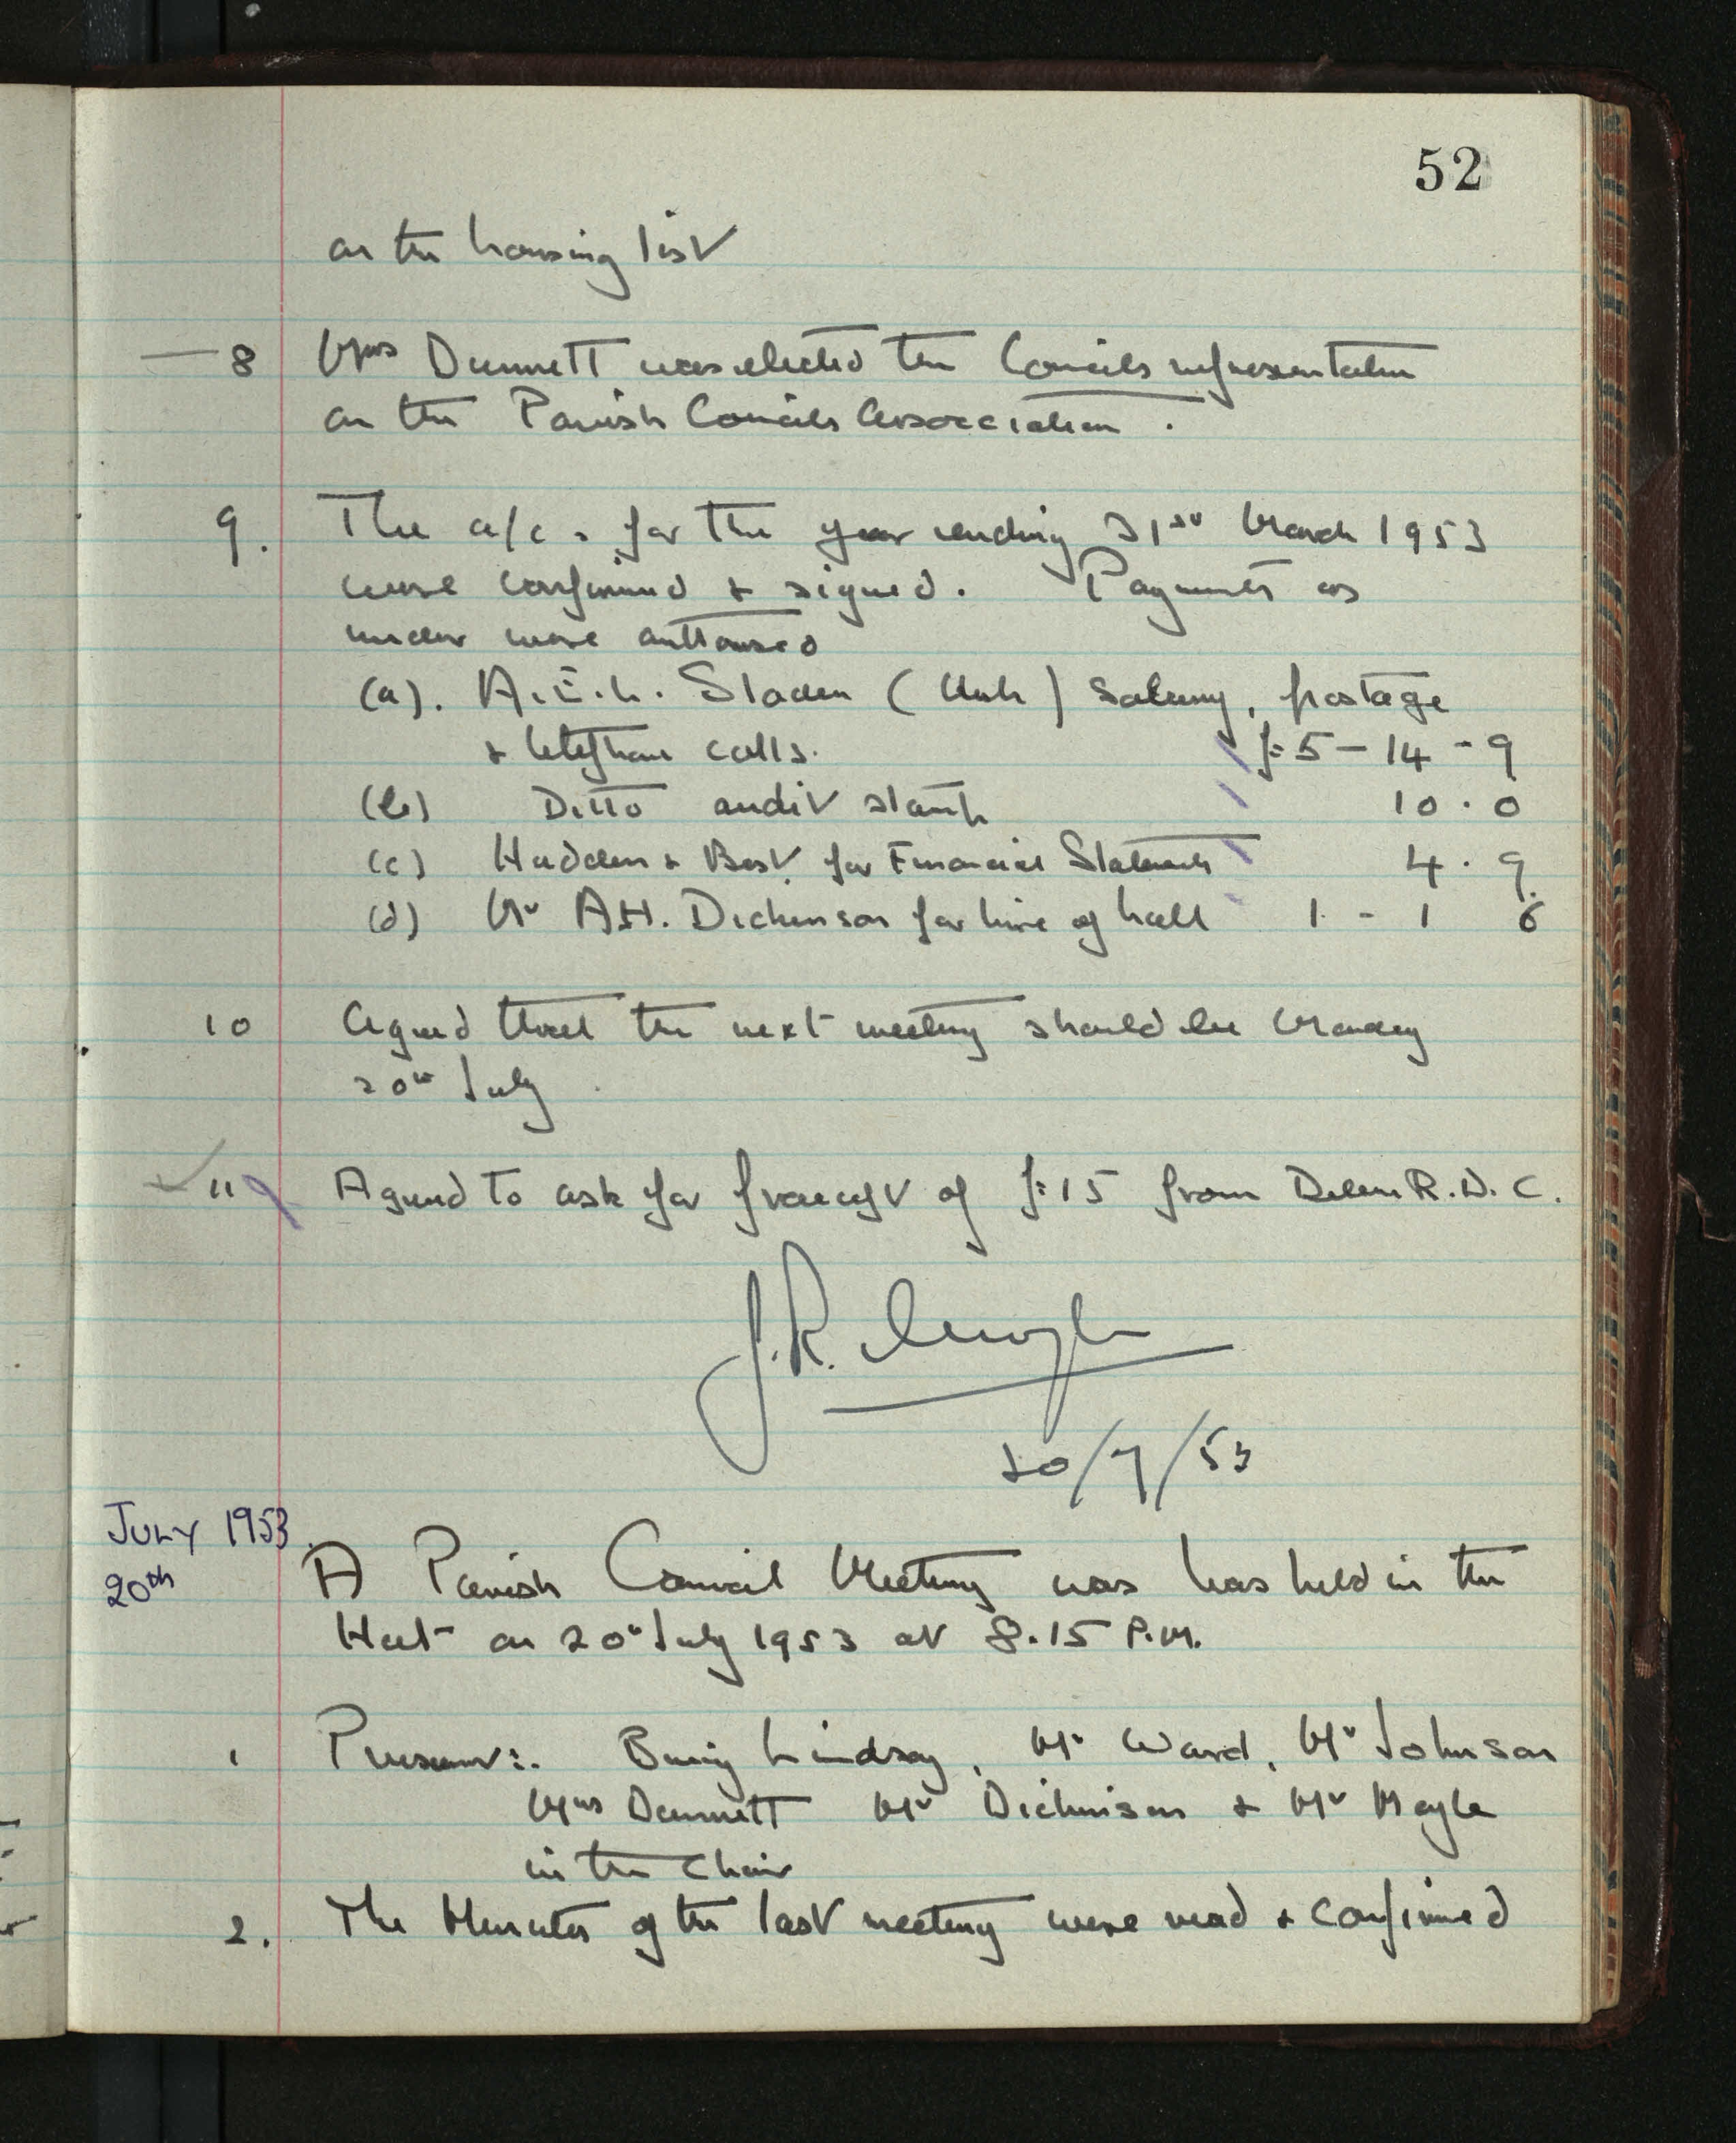 52
on the housing list
8 Mrs Dunnett was elected the Councils representative
on the Parish Councils Association.
9. The a/cs for the year ending 31st March 1953
were confirmed & signed. Payments as
under were authorised
(a). A.E.L. Sladen (Clerk) Salary, postage
& telephone calls. £5-14-9
(b) Ditto audit stamp 10.0
(c) Hadden & Best for Financial Statements 4.9.
(d) Mr A.H. Dickinson for hire of hall 1-1 6
10 Agreed that the next meeting should be Monday
20th July.
11 Agreed to ask for precept of £15 from R.D.C.
J.R. Moyle
20/7/53
JULY 1953.
20th
A Parish Council Meeting was was held in the
Hut on 20th July 1953 at 8.15 P.M.
1 Present:. Brig Lindsay, Mr Ward, Mr Johnson
Mrs Dunnett Mr Dickinson & Mr Moyle
in the Chair
2. The Minutes of the last meeting were read & confirmed